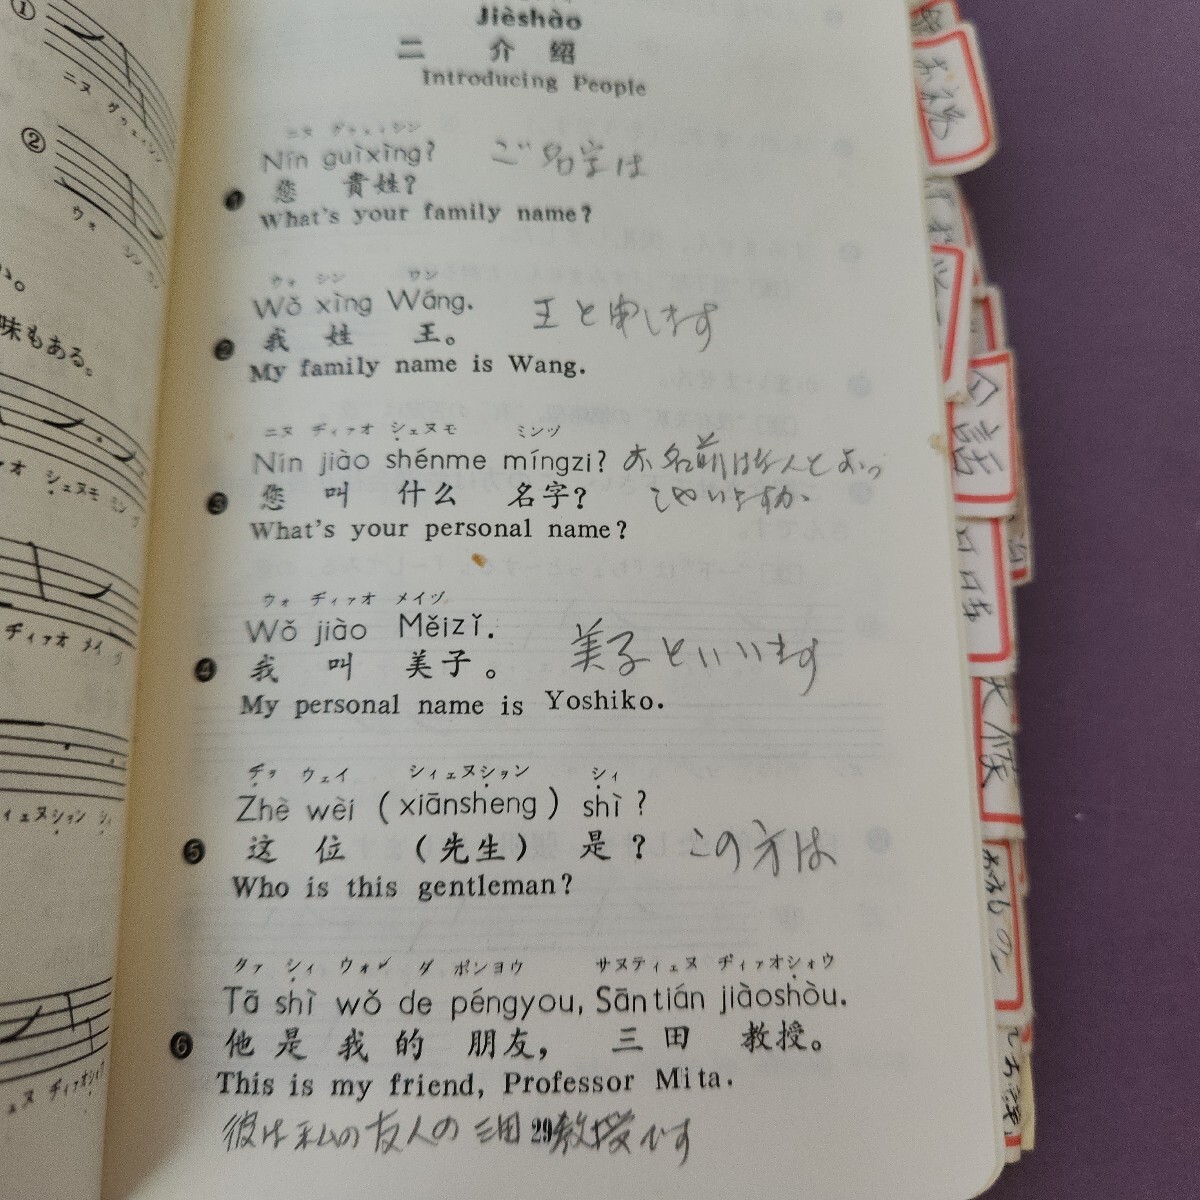 ①
ニヌ グゥェィシン
②
ウォ シン ワン
い。
味もある。
ァオ シェヌモ ミンヅ
ディァオ メイヅ
ィェヌション シィ
ェヌ ディァオシォゥ
Jièshào
二 介 绍
Introducing People
ニヌ グゥェィシン
Nín guìxìng? ご名字は
❶ 您 貴姓?
What's your family name?
ウォ シン ワン
Wǒ xìng Wáng. 王と申します
❷ 我 姓 王。
My family name is Wang.
ニヌ ディァオ シェヌモ ミンヅ
Nín jiào shénme míngzi? お名前は何人とおっ
❸ 您 叫 什么 名字? しゃいますか、
What's your personal name?
ウォ ディァオ メイヅ
Wǒ jiào Měizǐ.
❹ 我 叫 美子。 美子といいます
My personal name is Yoshiko.
ヂョ ウェイ シィェヌション シィ
Zhè wèi (xiānsheng) shì?
❺ 这 位 (先生) 是? この方は
Who is this gentleman?
タァ シィ ウォ ダ ポンヨウ サヌティェヌ ディァオショウ
Tā shì wǒ de péngyou, Sāntián jiàoshòu.
❻ 他 是 我 的 朋友, 三田 教授。
This is my friend, Professor Mita.
彼は私の友人の三田教授です
29
お祝
会話
天候
お礼の